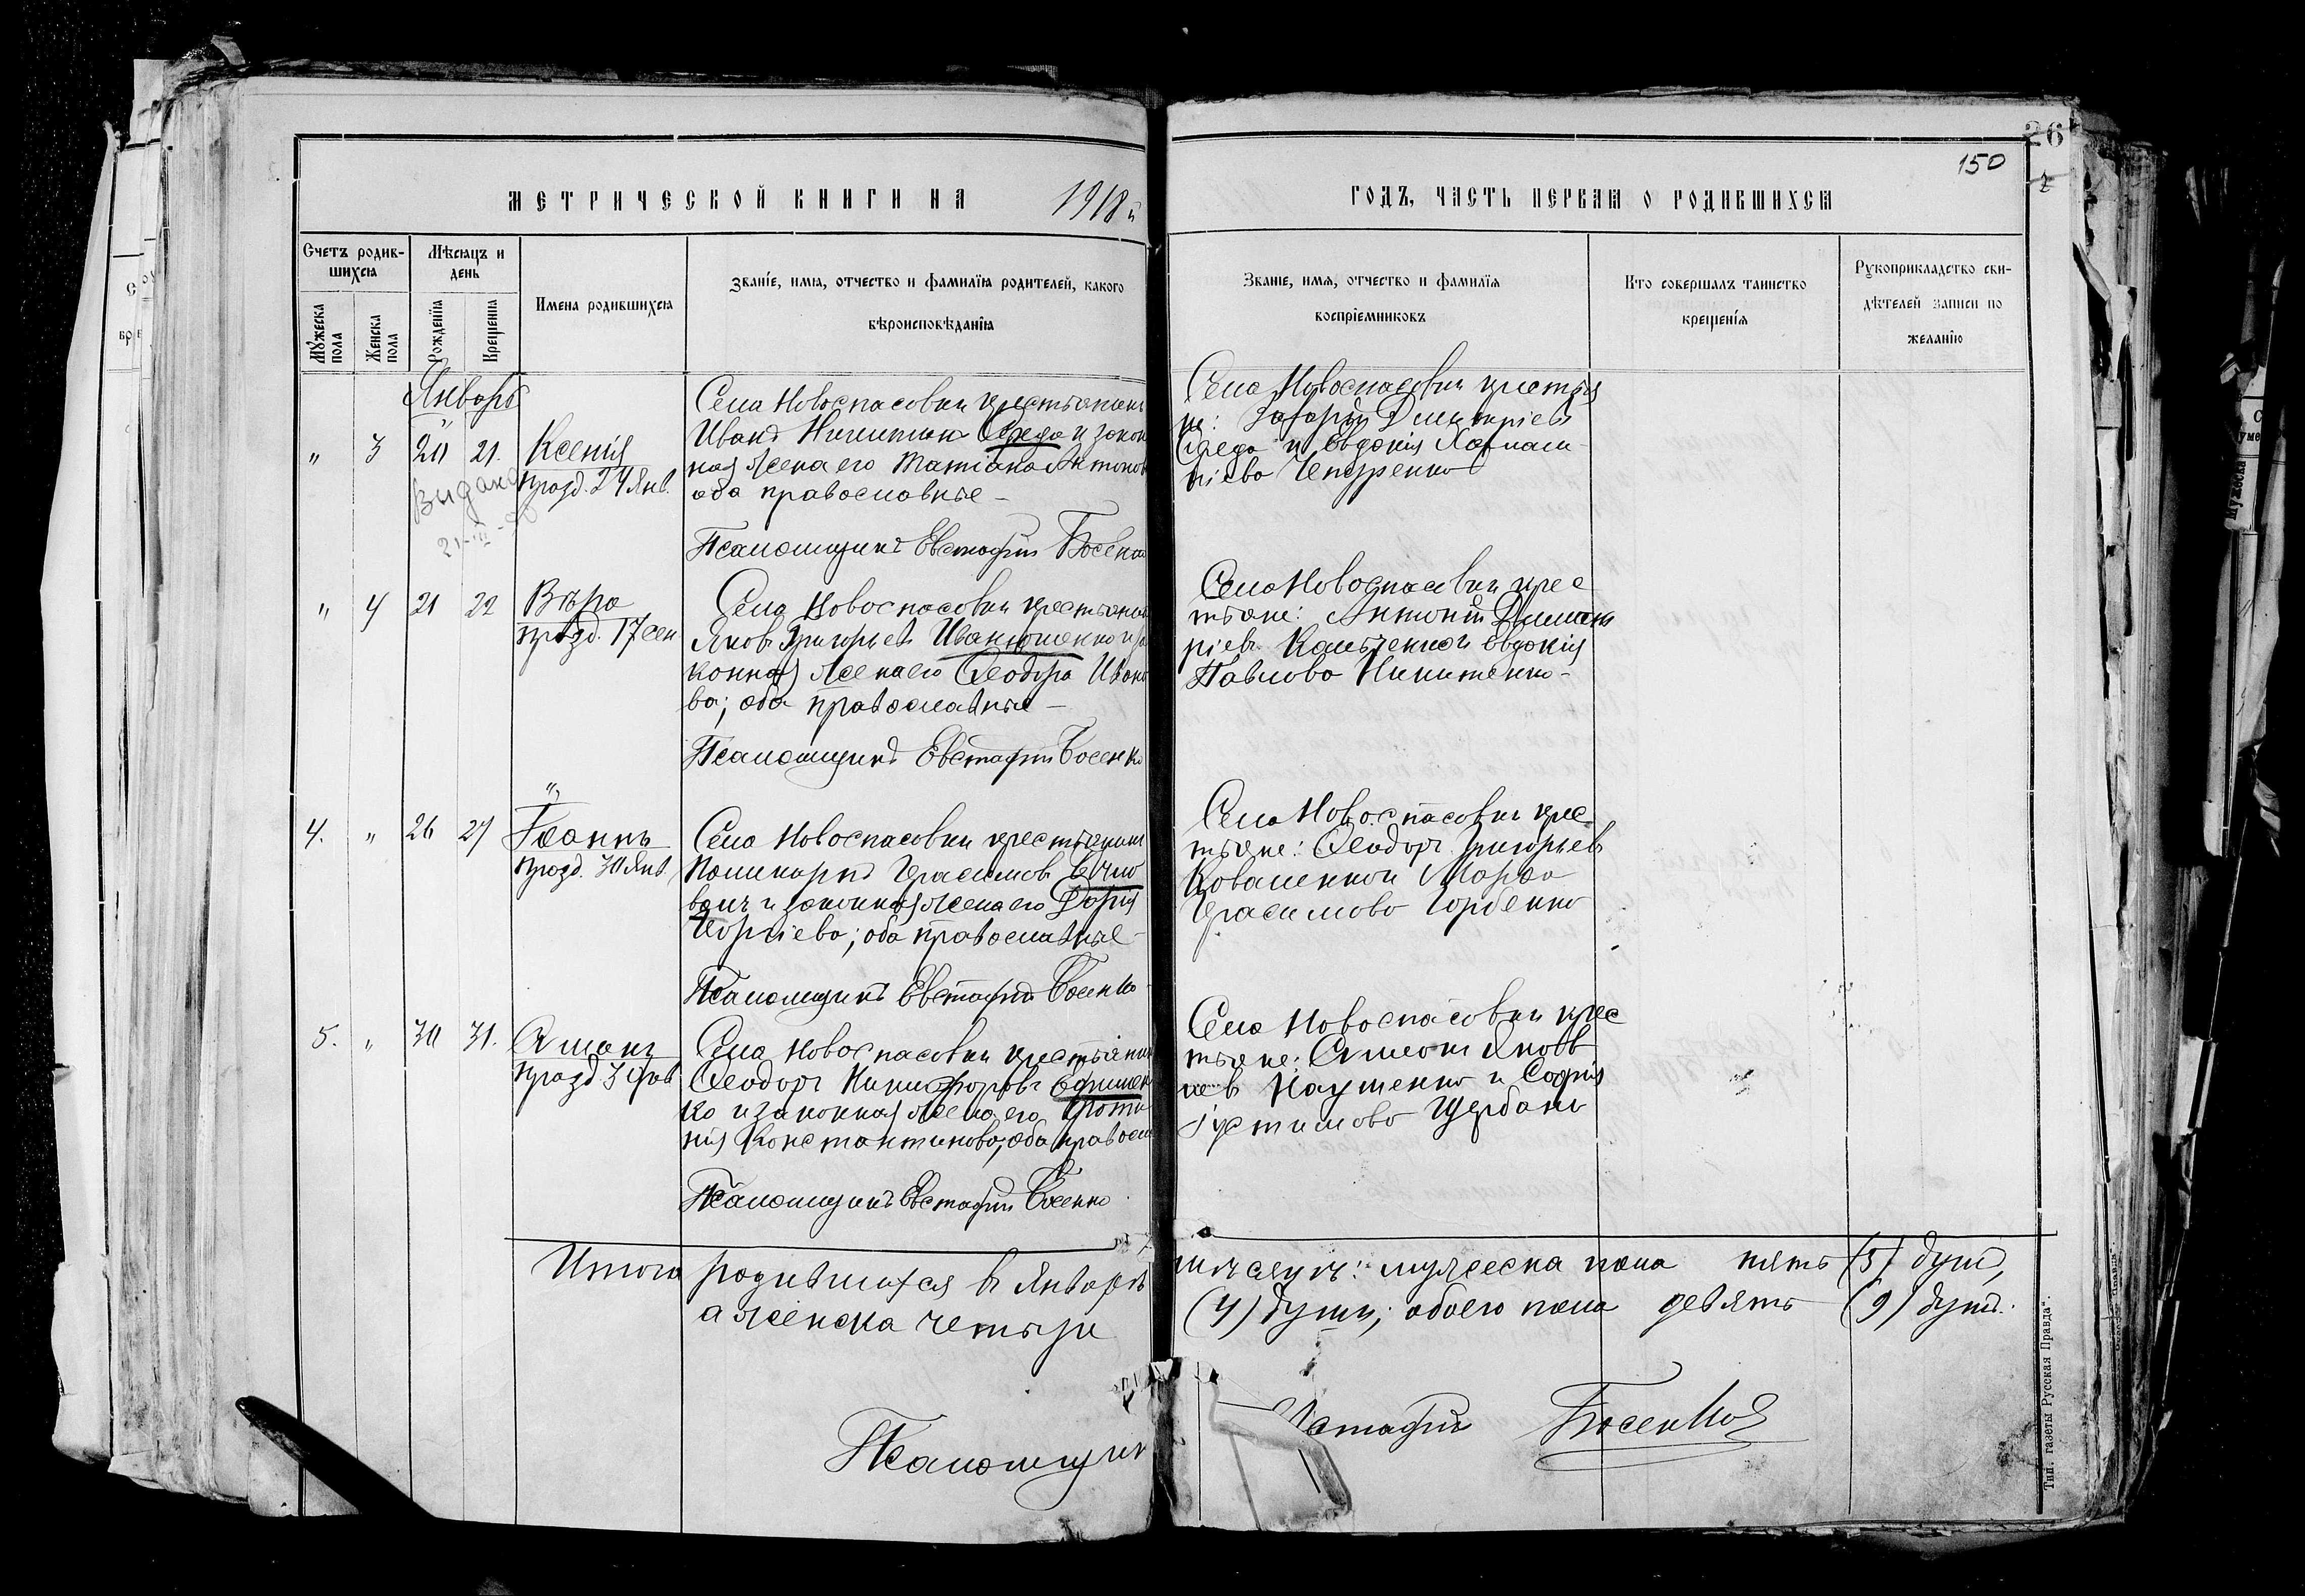 26
150
МЕТРИЧЕСКОЙ КНИГИ НА 1918й ГОДЪ, ЧАСТЬ ПЕРВАЯ О РОДИВШИХСЯ
Счетъ родив-
шихся
Мѣсяцъ и
день
Мужеска пола
Женска пола
Рожденія
Крещенія
Имена родившихся
Званіе, имя, отчество и фамилія родителей, какого
вѣроисповѣданія
Званіе, имя, отчество и фамилія
воспріемниковъ
Кто совершалъ таинство
крещенія
Рукоприкладство сви-
дѣтелей записи по
желанію
Январь
" 3 20 21. Ксенія
празд. 24 Янв.
Выдана
Села Новоспасовки крестьянинъ
Иванъ Никитинъ Середа и закон
ная жена его Татіана Антонов
оба православные –
Псаломщикъ Евстафій Босенко
Села Новоспасовки крестья
не: Захарій Димитріевъ
Середа и Евдокія
Чепуренко
" 4 21 22 Вѣра
празд. 17 сен
Села Новоспасовки крестьянинъ
Яковъ Григорьевъ Иванющенко и за
конная жена его Ѳеодора Ивано
ва; оба православные –
Псаломщикъ Евстафій Босенко
Села Новоспасовки крес
тьяне: Антоній Димит
ріевъ и Евдокія
Павлова Никитенко –
4. " 26 27 Іоаннъ
празд. 30 Янв.
Села Новоспасовки крестьянинъ
Поликарпъ Герасимовъ
и законная жена его Дарія
Георгіева; оба православные –
Псаломщикъ Евстафій Босенко
Села Новоспасовки крес
тьяне: Ѳеодоръ Григорьевъ
Коваленко и Марѳа
Герасимова Горбенко
5. " 30 31. Сѵмеонъ
празд 3 Фев
Села Новоспасовки крестьянинъ
Ѳеодоръ Никифоровъ Ефимен
ко и законная жена его
Константинова; оба правосл
Псаломщикъ Евстафій Босенко
Села Новоспасовки крес
тьяне: Сѵмеонъ Яковл
евъ Науменко и Софія
Іустимова Щербань
Итого родившихся въ Январѣ мѣсяцѣ: мужеска пола пять (5) душъ,
а женска четыре (4) души; обоего пола девять (9) душъ.
Псаломщикъ Евстафій Босенко
Тип. газеты Русская Правда“.